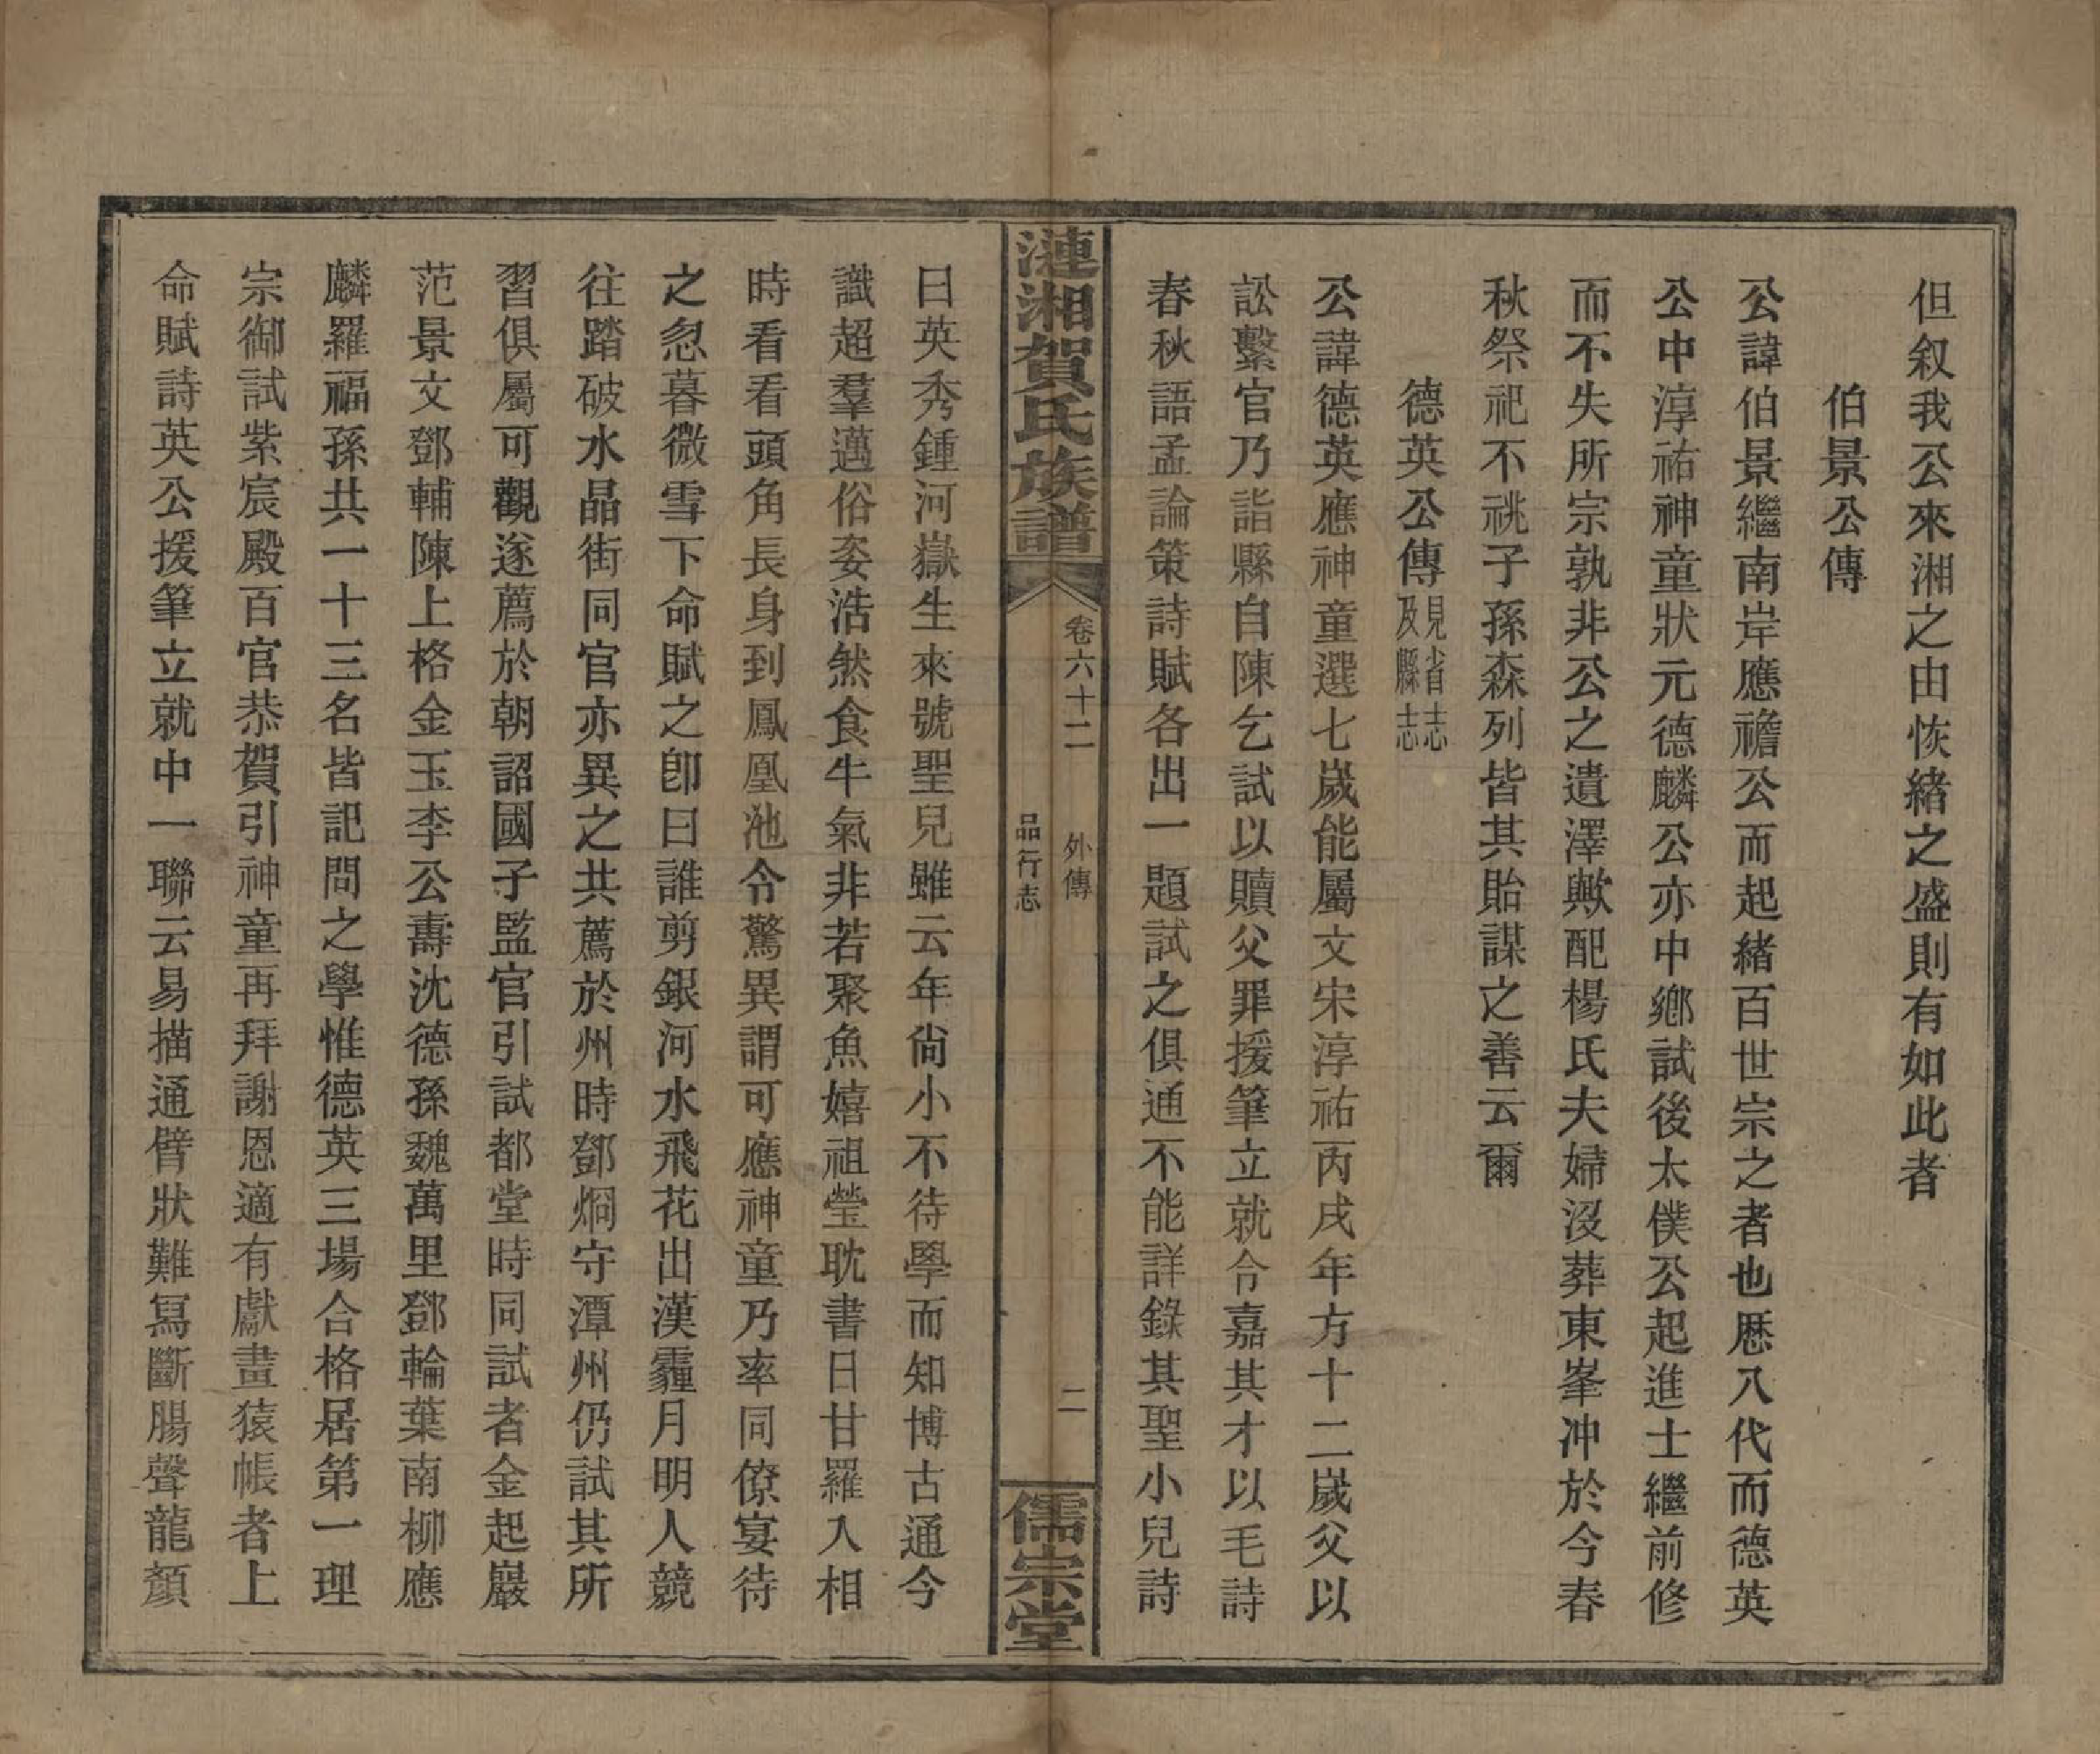 但叙我公來湘之由恢緒之盛則有如此者
伯景公傳
公諱伯景繼南岸應襜公而起緒百世宗之者也歷八代而德英
公中淳祐神童狀元德麟公亦中鄉試後太僕公起進士繼前修
而不失所宗孰非公之遺澤歟配楊氏夫婦沒葬東峯冲於今春
秋祭祀不祧子孫森列皆其貽謀之善云爾
德英公傳見省志及縣志
公諱德英應神童選七嵗能屬文宋淳祐丙戌年方十二嵗父以
訟繫官乃詣縣自陳乞試以贖父罪援筆立就令嘉其才以毛詩
春秋語孟論策詩賦各出一題試之俱通不能詳錄其聖小兒詩
漣湘賀氏族譜
卷六十二　外傳　二
品行志
儒宗堂
曰英秀鍾河嶽生來號聖兒雖云年尙小不待學而知博古通今
識超羣邁俗姿浩然食牛氣非若聚魚嬉祖瑩耽書日甘羅入相
時看看頭角長身到鳳凰池令驚異謂可應神童乃率同僚宴待
之忽暮微雪下命賦之卽曰誰剪銀河水飛花出漢霾月明人競
往踏破水晶街同官亦異之共薦於州時鄧烱守潭州仍試其所
習俱屬可觀遂薦於朝詔國子監官引試都堂時同試者金起巖
范景文鄧輔陳上格金玉李公壽沈德孫魏萬里鄧輪葉南柳應
麟羅福孫共一十三名皆記問之學惟德英三場合格居第一理
宗御試紫宸殿百官恭賀引神童再拜謝恩適有獻畫猿帳者上
命賦詩英公援筆立就中一聯云易描通臂狀難寫斷腸聲龍顏